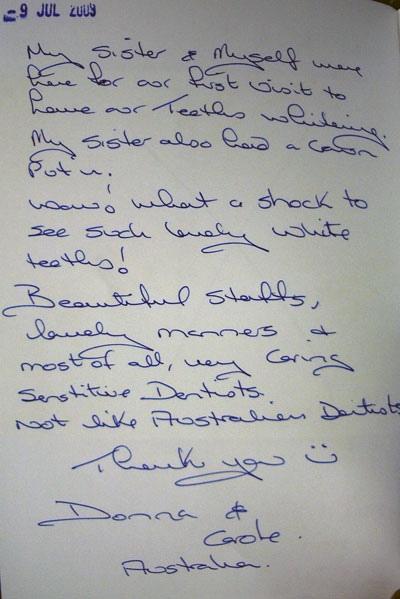 - 9 JUL 2009
My sister & Myself were
here for our first visit to
have our Teeths whitening.
My sister also had a Crown
Put in.
wow! what a shock to
see such lovely white
teeths!
Beautiful staffs,
lovely manners &
most of all, very Caring
Senstitive Dentists.
Not like Australian Dentists
Thank you ☺
Donna &
Carole.
Australia.